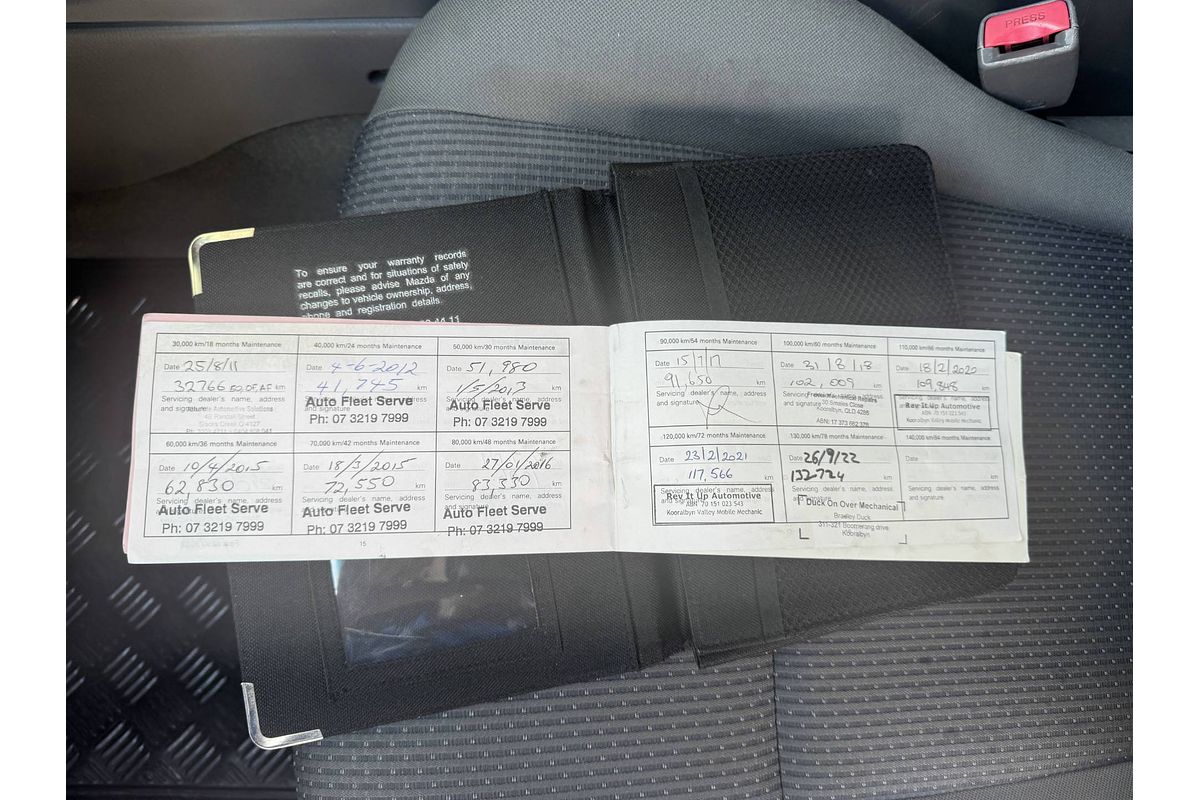 PRESS
To ensure your warranty records
are correct and for situations of safety
recalls, please advise Mazda of any
changes to vehicle ownership, address,
phone and registration details.
30,000 km/18 months Maintenance
Date 25/8/11
32766 km
Servicing dealer's name, address
and signature
Automotive Solutions
40,000 km/24 months Maintenance
Date 4-6-2012
41,745 km
Servicing dealer's name, address
and signature
Auto Fleet Serve
Ph: 07 3219 7999
50,000 km/30 months Maintenance
Date 51,980
1/5/2013 km
Servicing dealer's name, address
and signature
Auto Fleet Serve
Ph: 07 3219 7999
60,000 km/36 months Maintenance
Date 10/4/2015
62,830 km
Servicing dealer's name, address
and signature
Auto Fleet Serve
Ph: 07 3219 7999
70,000 km/42 months Maintenance
Date 18/3/2015
72,550 km
Servicing dealer's name, address
and signature
Auto Fleet Serve
Ph: 07 3219 7999
80,000 km/48 months Maintenance
Date 27/01/2016
83,330 km
Servicing dealer's name, address
and signature
Auto Fleet Serve
Ph: 07 3219 7999
15
90,000 km/54 months Maintenance
Date 15/7/17
91,650 km
Servicing dealer's name, address
and signature
100,000 km/60 months Maintenance
Date 31/8/18
102,009 km
Servicing dealer's name, address
and signature
Mechanical Repairs
Close
Kooralbyn, QLD 4285
ABN: 17 373 682 376
110,000 km/66 months Maintenance
Date 18/2/2020
109,848 km
Servicing dealer's name, address
and signature
Rev It Up Automotive
ABN 70 151 023 543
Kooralbyn Valley Mobile Mechanic
120,000 km/72 months Maintenance
Date 23/2/2021
117,566 km
Servicing dealer's name, address
and signature
Rev It Up Automotive
ABN 70 151 023 543
Kooralbyn Valley Mobile Mechanic
130,000 km/78 months Maintenance
Date 26/9/22
132724 km
Servicing dealer's name, address
and signature
Duck On Over Mechanical
Bradley Duck
311-321 Boomerang drive
Kooralbyn
140,000 km/84 months Maintenance
Date
km
Servicing dealer's name, address
and signature